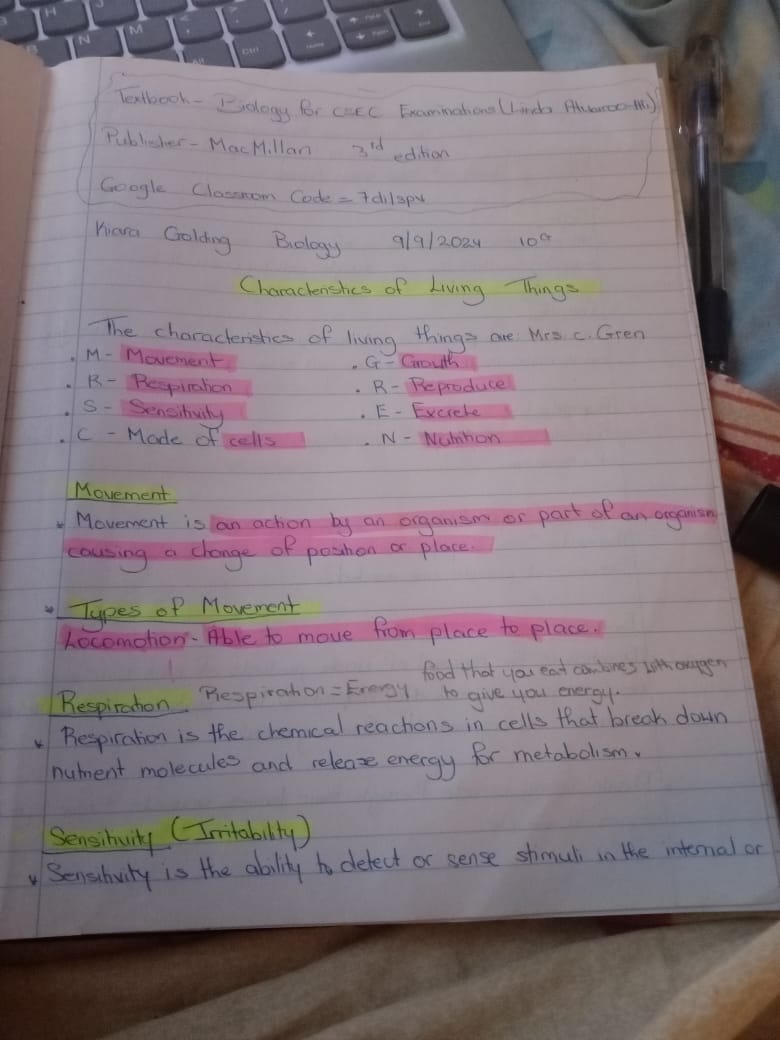 Textbook - Biology for CSEC Examinations (Linda
Publisher - MacMillan 3rd edition
Google Classroom Code =
Kiara Golding Biology 9/9/2024 10G
Characteristics of Living Things
The characteristics of living things are: Mrs. C. Gren
• M - Movement • G - Growth
• R - Respiration • R - Reproduce
• S - Sensitivity • E - Excrete
• C - Made of cells • N - Nutrition
Movement
* Movement is an action by an organism or part of an organism
causing a change of position or place.
* Types of Movement
Locomotion - Able to move from place to place.
food that you eat combines with oxygen
Respiration Respiration = Energy to give you energy.
* Respiration is the chemical reactions in cells that break down
nutrient molecules and release energy for metabolism.
Sensitivity (Irritability)
* Sensitivity is the ability to detect or sense stimuli in the internal or
H
N
M
Ctrl
Home